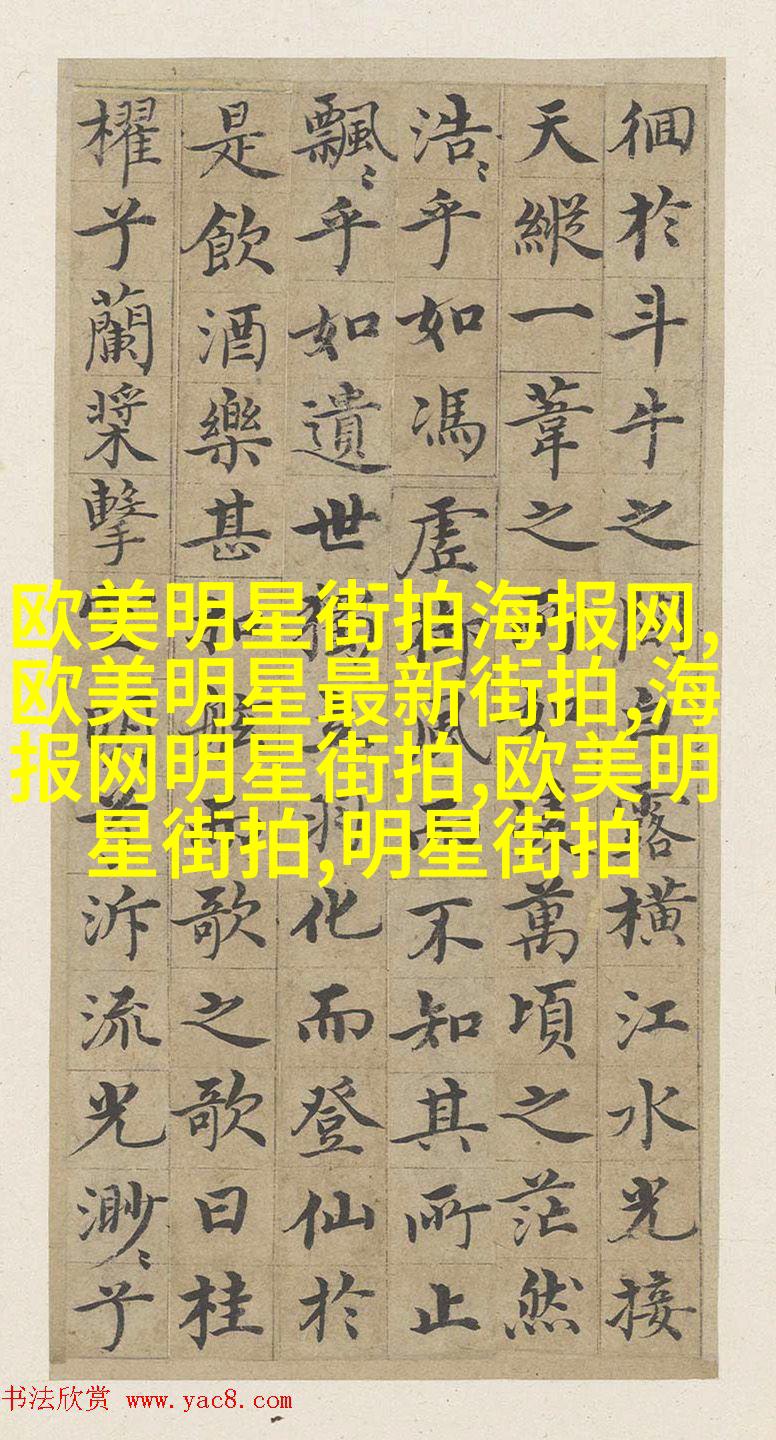 徊於斗牛之間白露橫江水光接
天縱一葦之所如凌萬頃之茫然
浩〻乎如馮虛御風而不知其所止
飄〻乎如遺世獨立羽化而登仙於
是飲酒樂甚扣舷而歌之歌曰桂
櫂兮蘭槳擊空明兮泝流光渺〻兮
欧美明星街拍海报网,
欧美明星最新街拍,海
报网明星街拍,欧美明
星街拍,明星街拍
书法欣赏 www.yac8.com